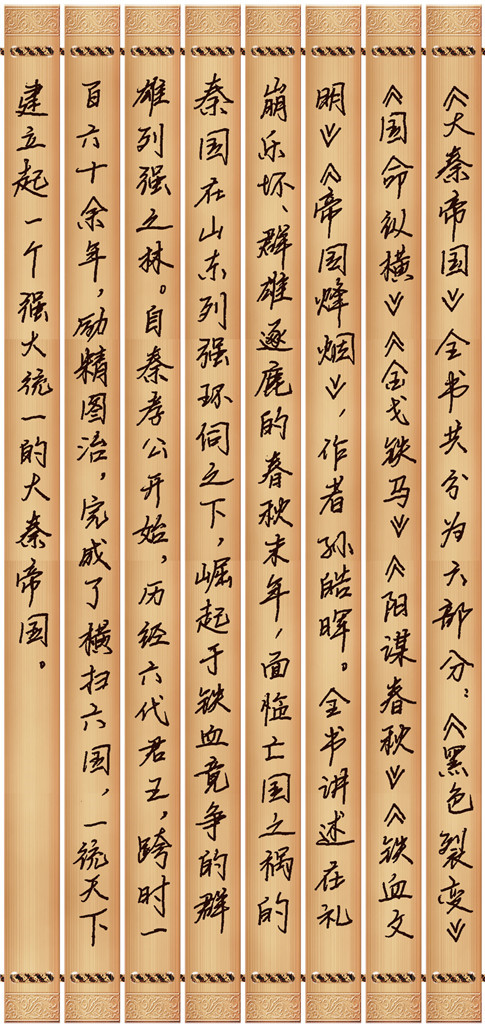 《大秦帝国》全书共分为六部分：《黑色裂变》
《国命纵横》《金戈铁马》《阳谋春秋》《铁血文
明》《帝国烽烟》，作者孙皓晖。全书讲述在礼
崩乐坏、群雄逐鹿的春秋末年，面临亡国之祸的
秦国在山东列强环伺之下，崛起于铁血竟争的群
雄列强之林。自秦孝公开始，历经六代君王，跨时一
百六十余年，励精图治，完成了横扫六国，一统天下
建立起一个强大统一的大秦帝国。